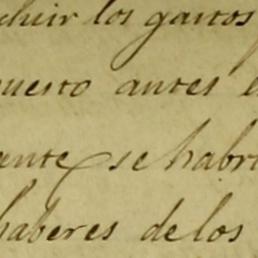 cluir los gastos
puesto antes
ante se habr
haberes de los